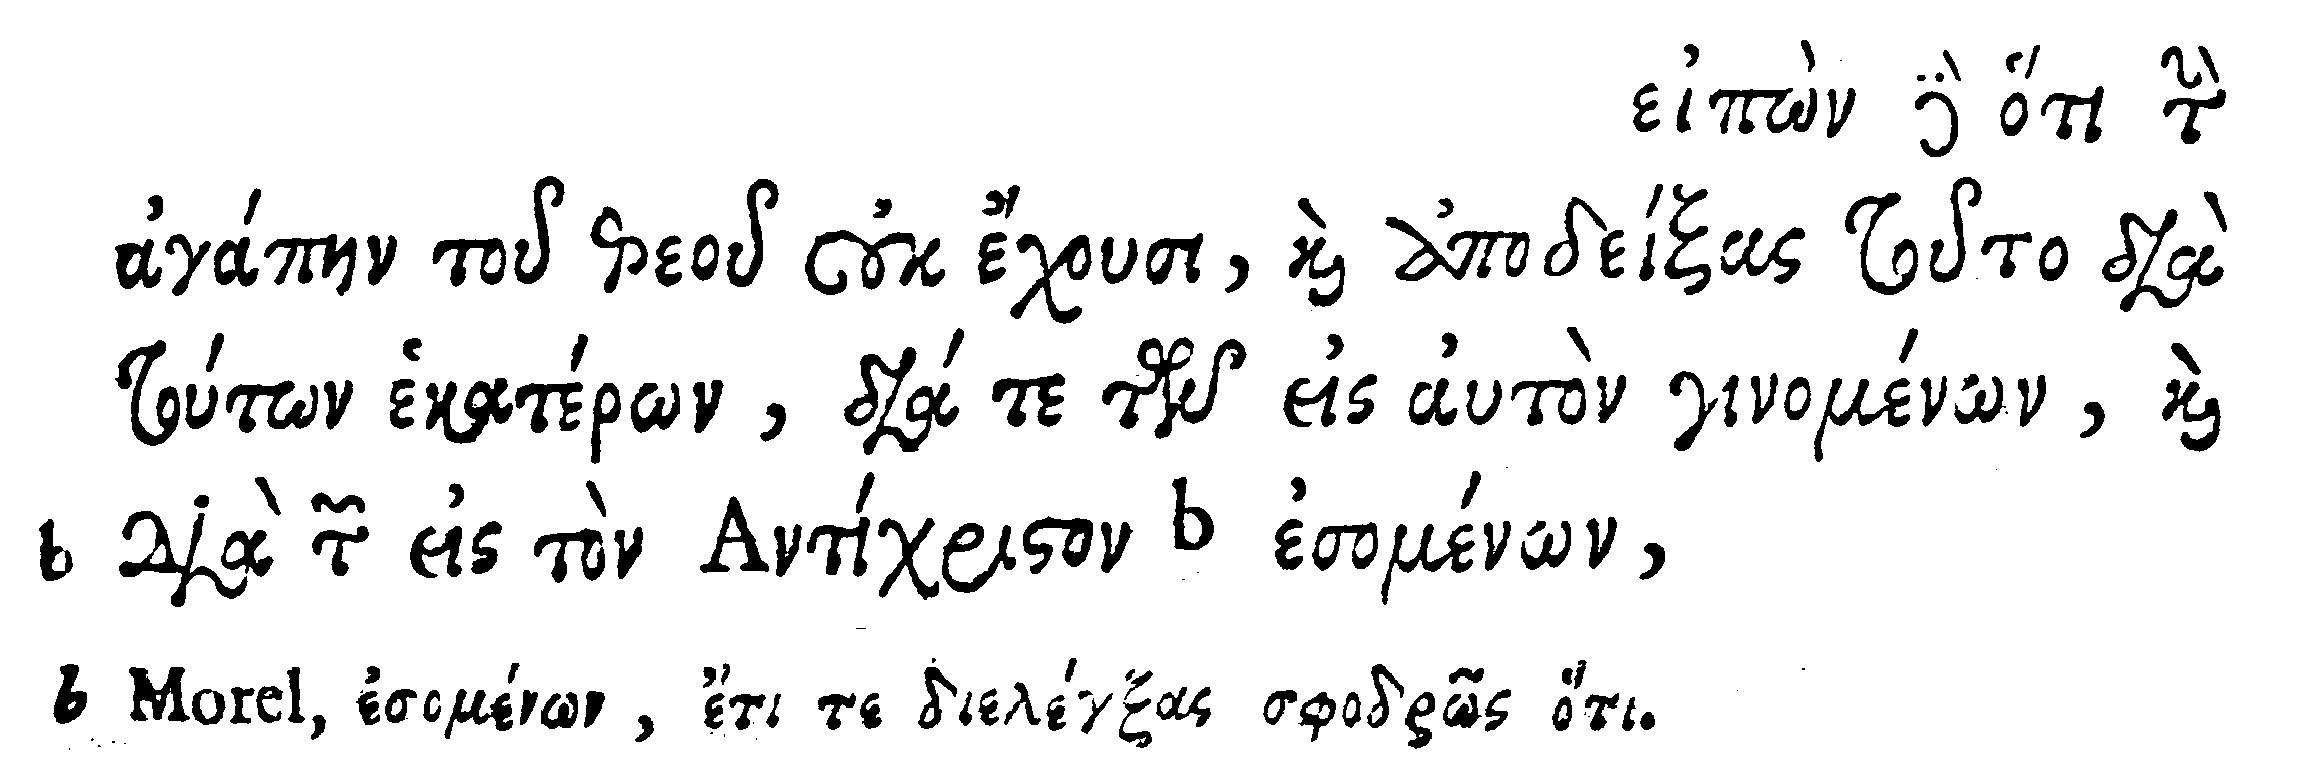 εἰπὼν γὰρ ὅτι τὴν
ἀγάπην τοῦ θεοῦ οὐκ ἔχουσι, καὶ ἀποδείξας τοῦτο διὰ
τούτων ἑκατέρων, διά τε τῶν εἰς αὐτὸν γινομένων, καὶ
b διὰ τῶν εἰς τὸν Αντίχριστον b ἐσομένων,
b Morel, ἐσομένων, ἔτι τε διελέγξας σφοδρῶς ὅτι.